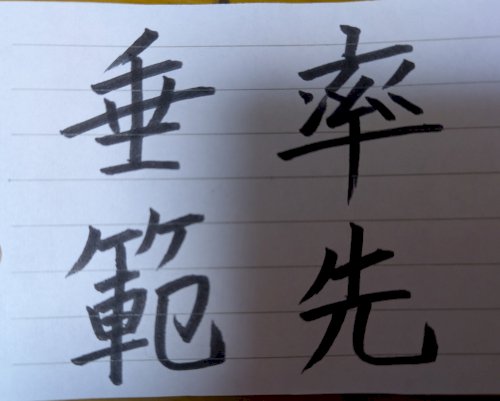 率先
垂範